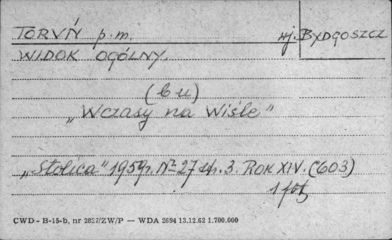 TORUŃ p.m. wj. BYDGOSZCZ
WIDOK OGÓLNY.
(bu)
„Wczasy na Wiśle"
„Stolica" 1959r. Nº 27 str. 3. ROK XIV. (603)
1 fot
CWD - B-15-b, nr 2827/ZW/P — WDA 2694 13.12.62 1.700.000